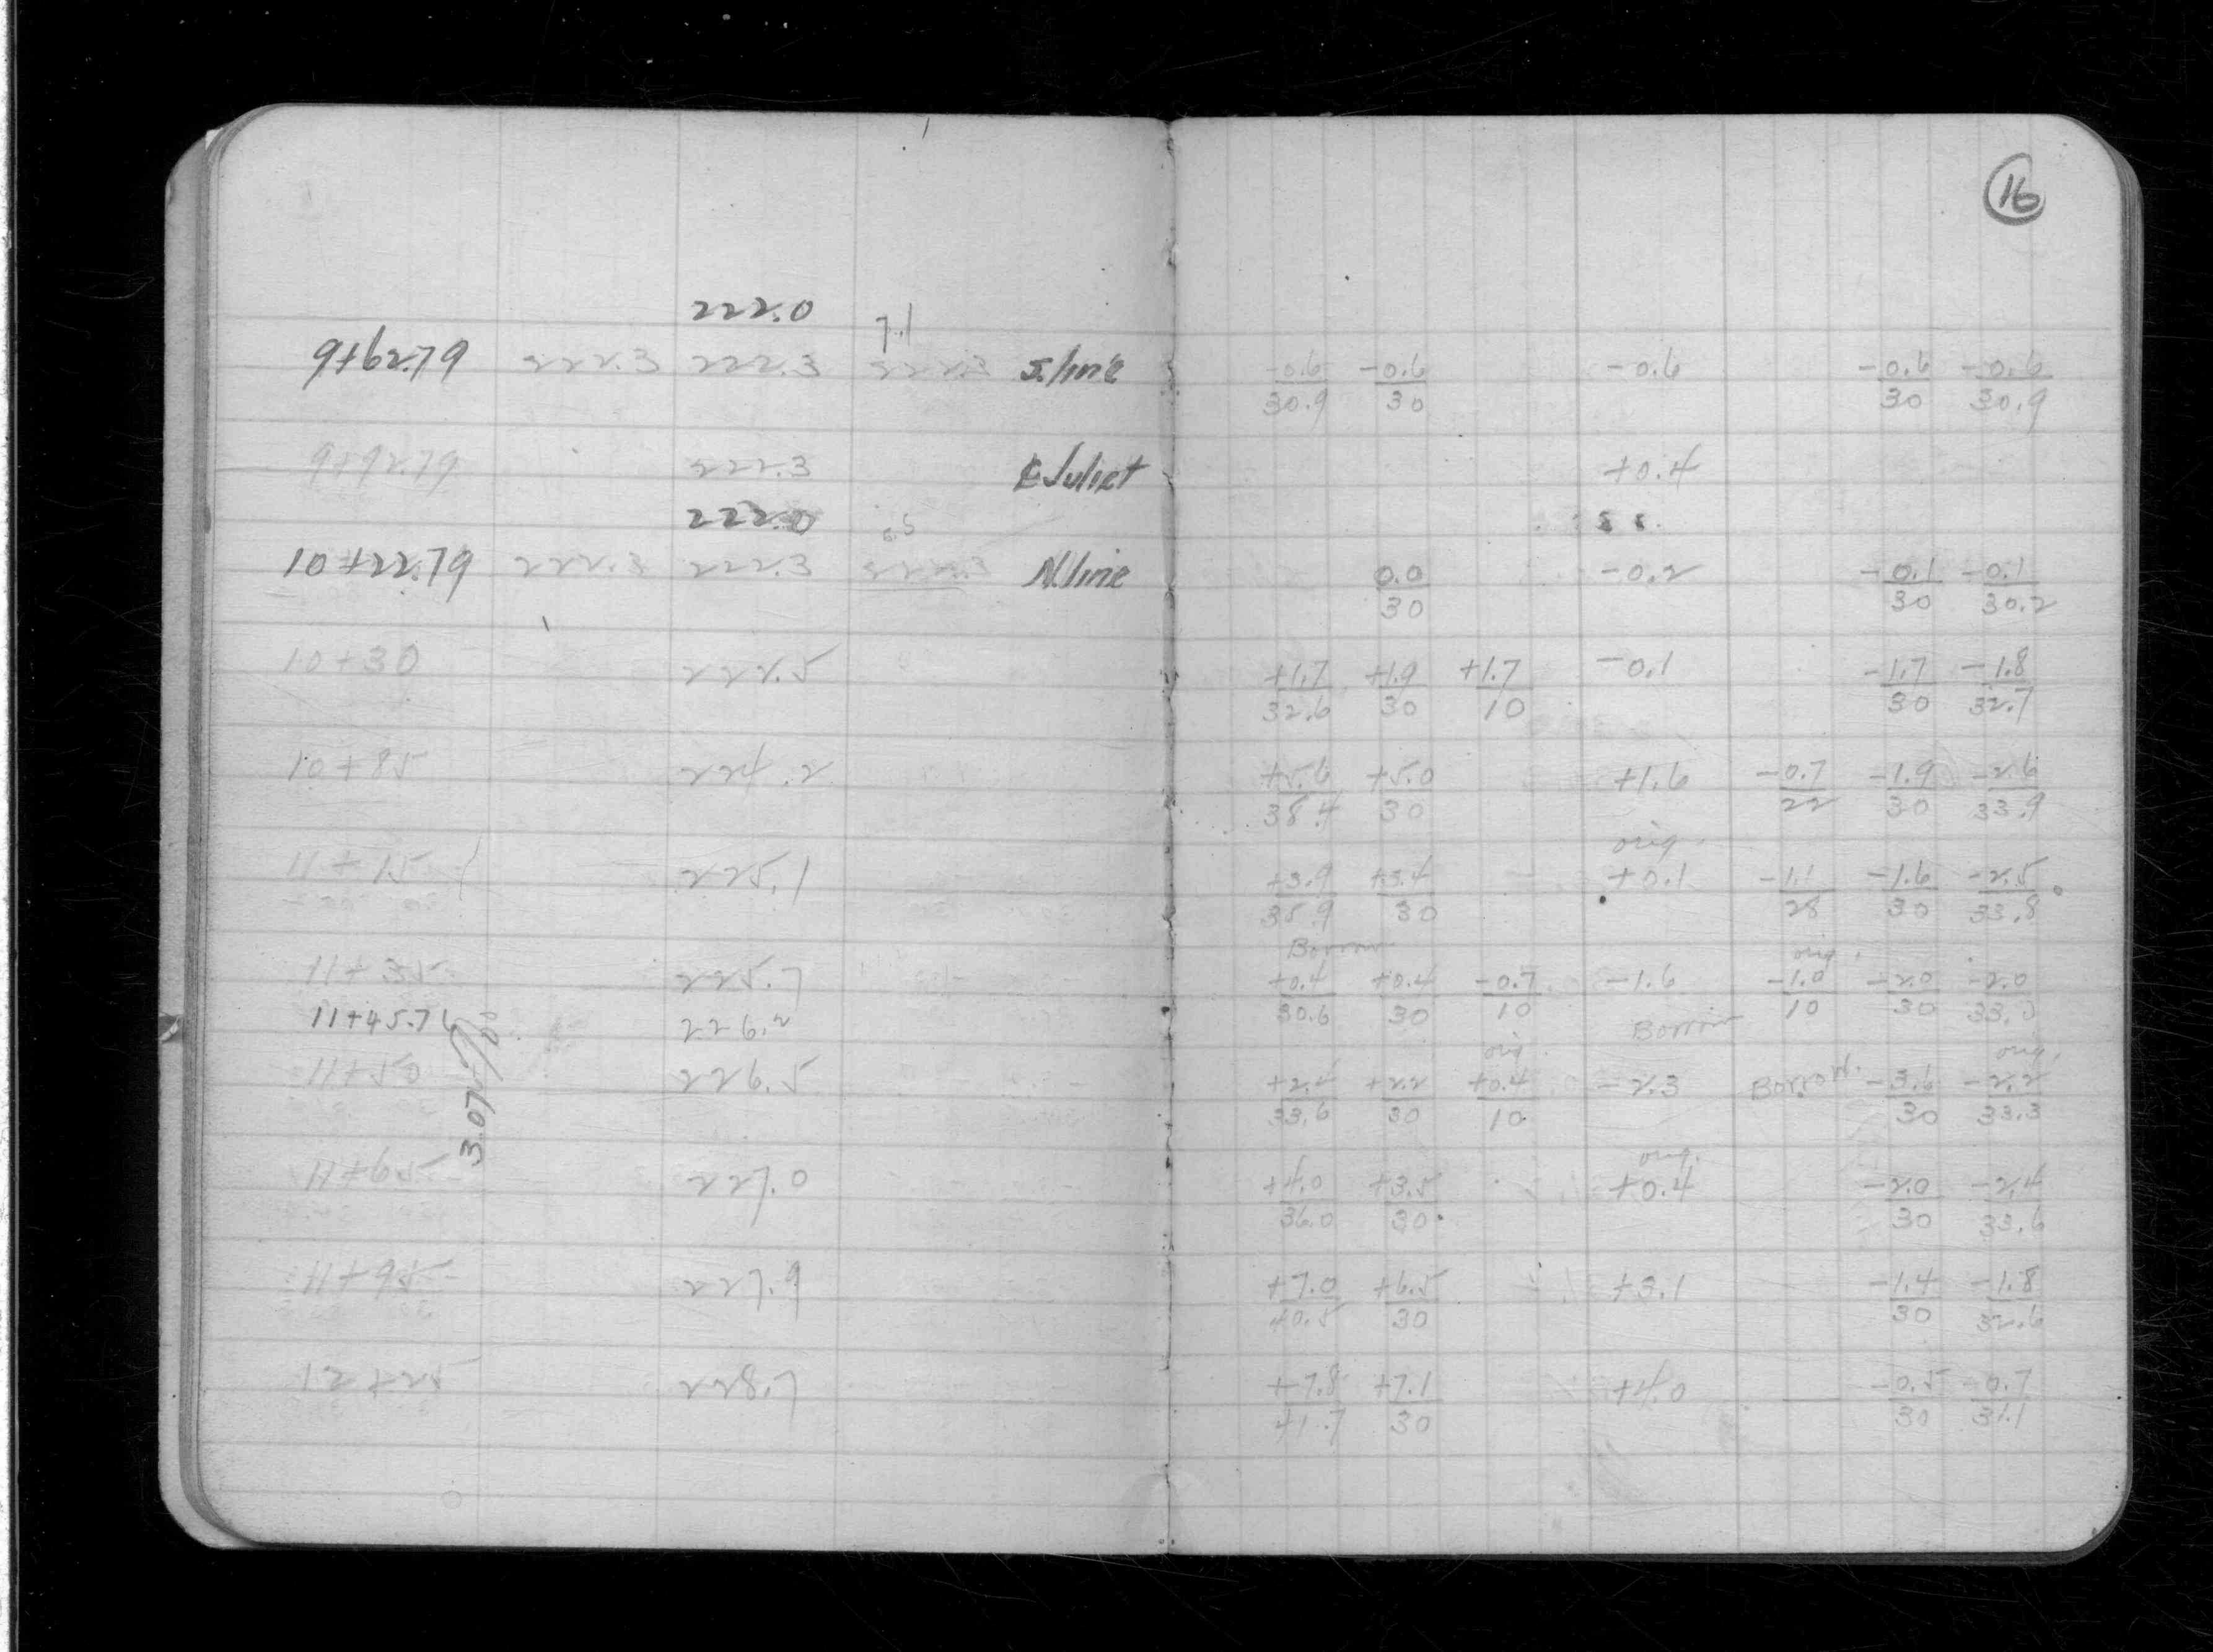 16
222.0
7.1
9+62.79 222.3 222.3 222.3 S. line -0.6/30.9 -0.6/30 -0.6 -0.6/30 -0.6/30.9
9+92.79 222.3 ₵ Juliet +0.4
222.0 6.5
10+22.79 222.3 222.3 222.3 N. line 0.0/30 -0.2 -0.1/30 -0.1/30.2
10+30 222.5 +1.7/32.6 +1.9/30 +1.7/10 -0.1 -1.7/30 -1.8/32.7
10+85 224.2 +5.6/38.4 +5.0/30 +1.6 -0.7/22 -1.9/30 -2.6/33.9
orig.
11+15 225.1 +3.9/35.9 +3.4/30 +0.1 -1.1/28 -1.6/30 -2.5/33.8
Borrow orig.
11+35 225.7 +0.4/30.6 +0.4/30 -0.7/10 -1.6 -1.0/10 -2.0/30 -2.0/33.0
11+45.76 226.2 Borrow
orig. orig.
11+50 226.5 +2.4/33.6 +2.2/30 +0.4/10 -2.3 Borrow -3.6/30 -2.2/33.3
orig.
11+65 227.0 +4.0/36.0 +3.5/30 +0.4 -2.0/30 -2.4/33.6
11+95 227.9 +7.0/40.5 +6.5/30 +3.1 -1.4/30 -1.8/32.6
12+25 228.7 +7.8/41.7 +7.1/30 +4.0 -0.5/30 -0.7/31.1